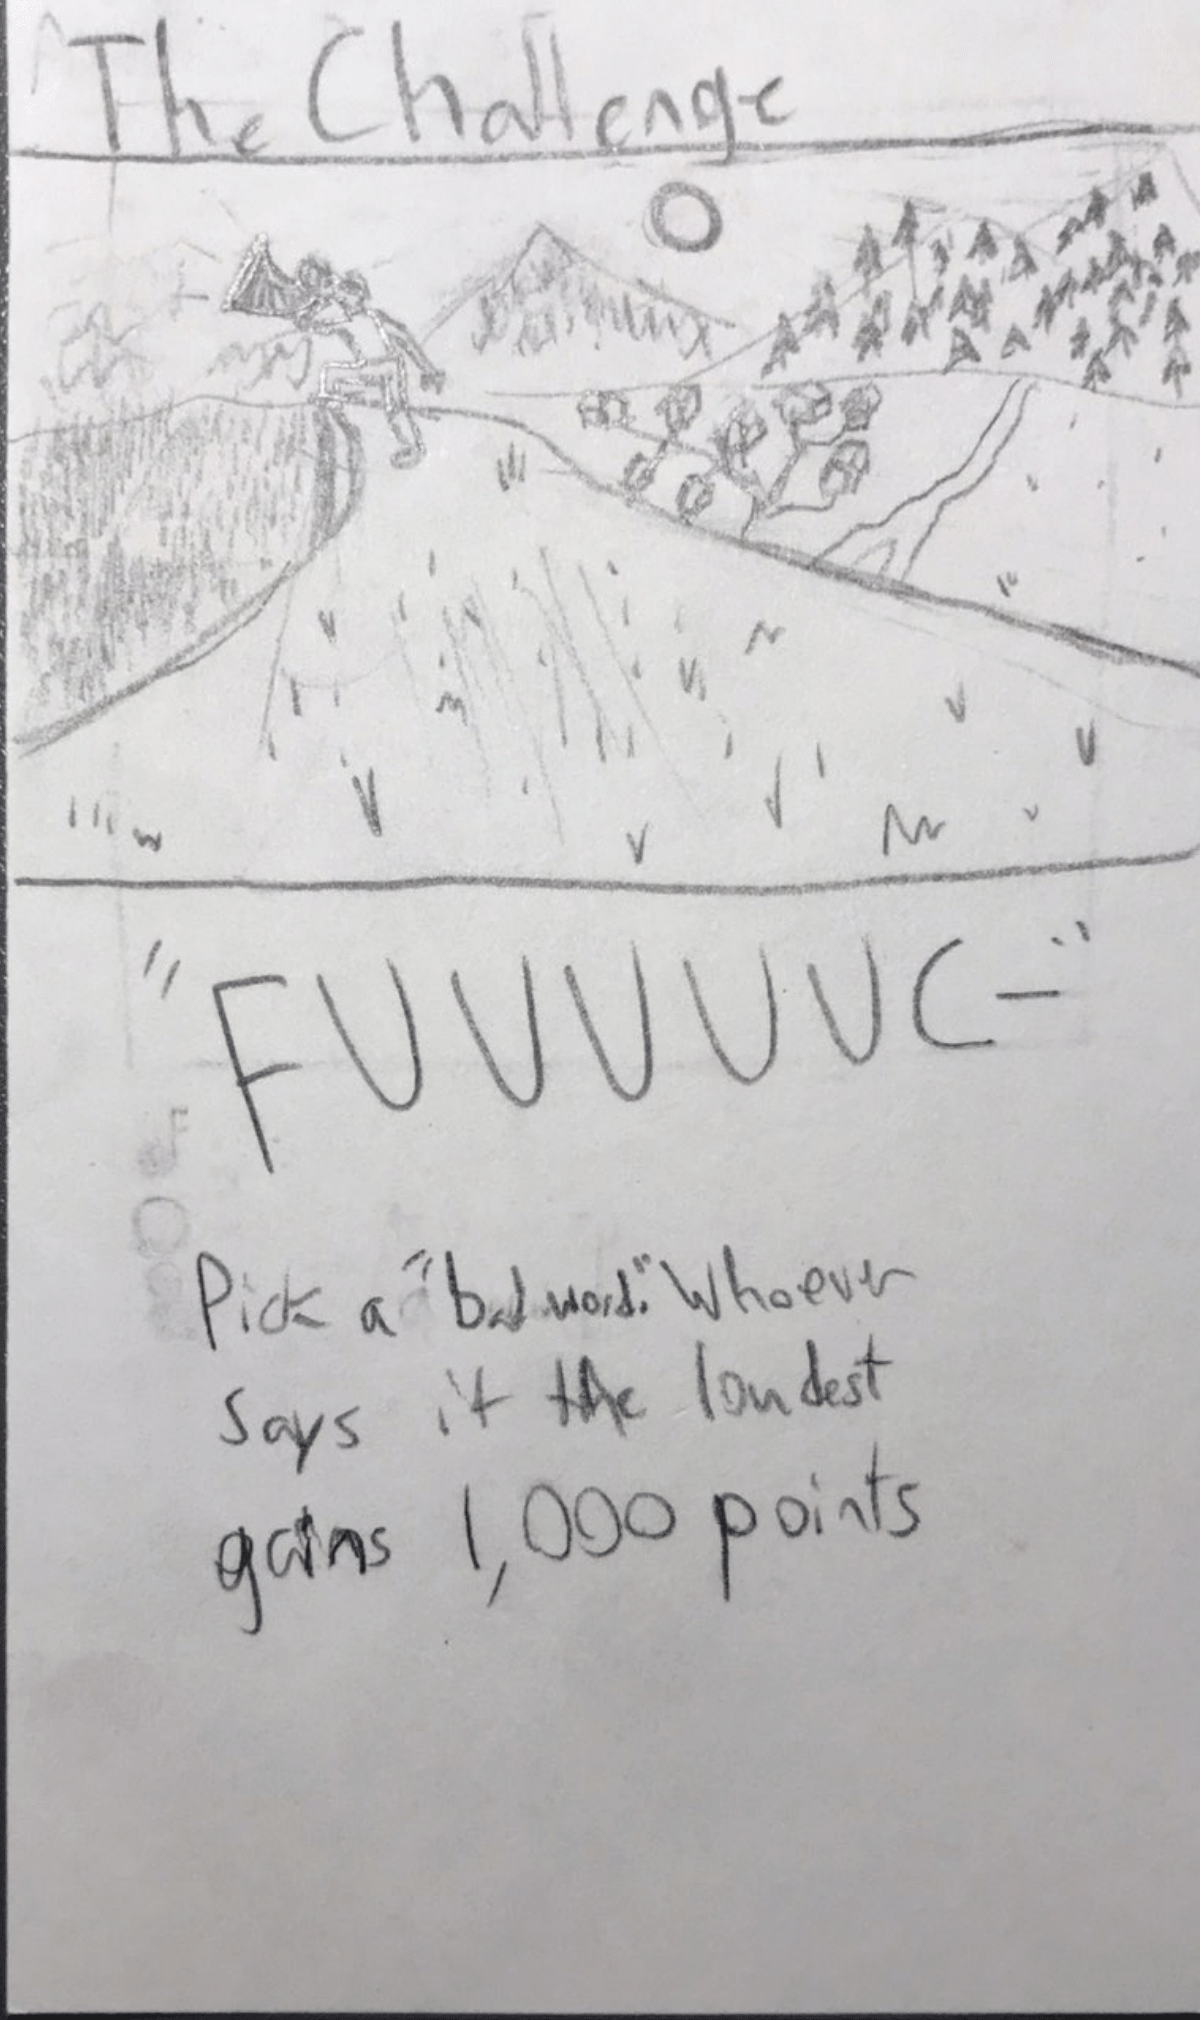 The Challenge
"FUUUUUC-"
Pick a "bad word." Whoever
says it the loudest
gains 1,000 points